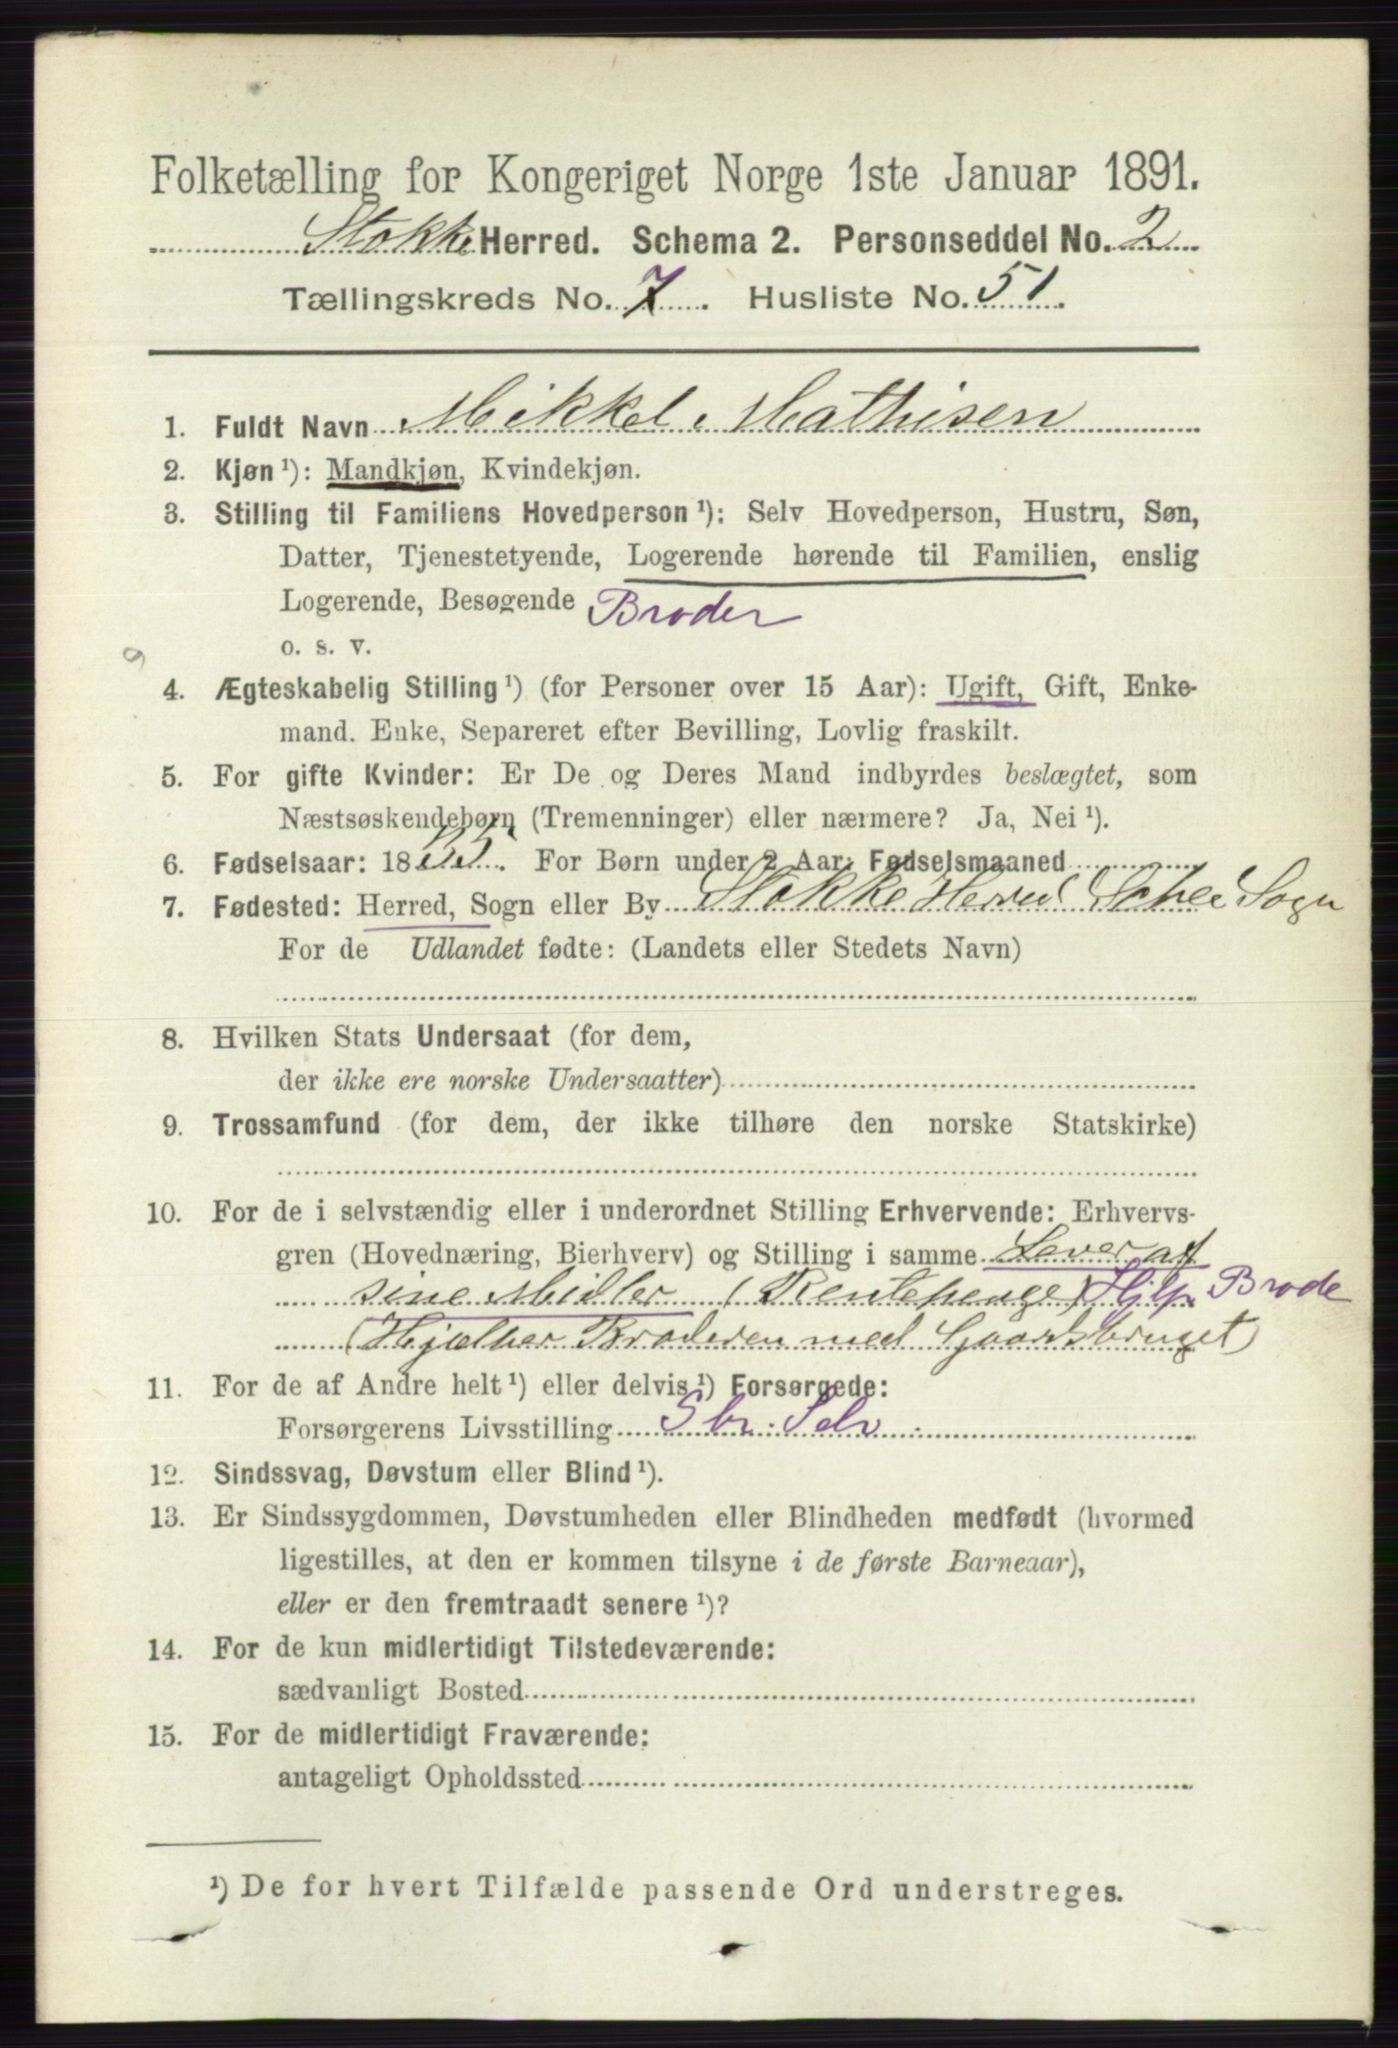 Folketælling for Kongeriget Norge 1ste Januar 1891.
Stokke Herred. Schema 2. Personseddel No. 2
Tællingskreds No. 7. Husliste No. 51.
1. Fuldt Navn Mikkel Mathisen
2. Kjøn ¹): Mandkjøn, Kvindekjøn.
3. Stilling til Familiens Hovedperson ¹): Selv Hovedperson, Hustru, Søn,
Datter, Tjenestetyende, Logerende hørende til Familien, enslig
Logerende, Besøgende Broder
o. s. v.
9
4. Ægteskabelig Stilling ¹) (for Personer over 15 Aar): Ugift, Gift, Enke-
mand. Enke, Separeret efter Bevilling, Lovlig fraskilt.
5. For gifte Kvinder: Er De og Deres Mand indbyrdes beslægtet, som
Næstsøskendebørn (Tremenninger) eller nærmere? Ja, Nei ¹).
6. Fødselsaar: 18 For Børn under 2 Aar: Fødselsmaaned
7. Fødested: Herred, Sogn eller By Stokke Herred Sogn
For de Udlandet fødte: (Landets eller Stedets Navn)
8. Hvilken Stats Undersaat (for dem,
der ikke ere norske Undersaatter)
9. Trossamfund (for dem, der ikke tilhøre den norske Statskirke)
10. For de i selvstændig eller i underordnet Stilling Erhvervende: Erhvervs-
gren (Hovednæring, Bierhverv) og Stilling i samme Lever af
sine Midler (Rentepenge) Hjlp Brode
(Hjælper Broderen med Gaardsbruget)
11. For de af Andre helt ¹) eller delvis ¹) Forsørgede:
Forsørgerens Livsstilling Sbr. Selv
12. Sindssvag, Døvstum eller Blind ¹).
13. Er Sindssygdommen, Døvstumheden eller Blindheden medfødt (hvormed
ligestilles, at den er kommen tilsyne i de første Barneaar),
eller er den fremtraadt senere ¹)?
14. For de kun midlertidigt Tilstedeværende:
sædvanligt Bosted
15. For de midlertidigt Fraværende:
antageligt Opholdssted
¹) De for hvert Tilfælde passende Ord understreges.